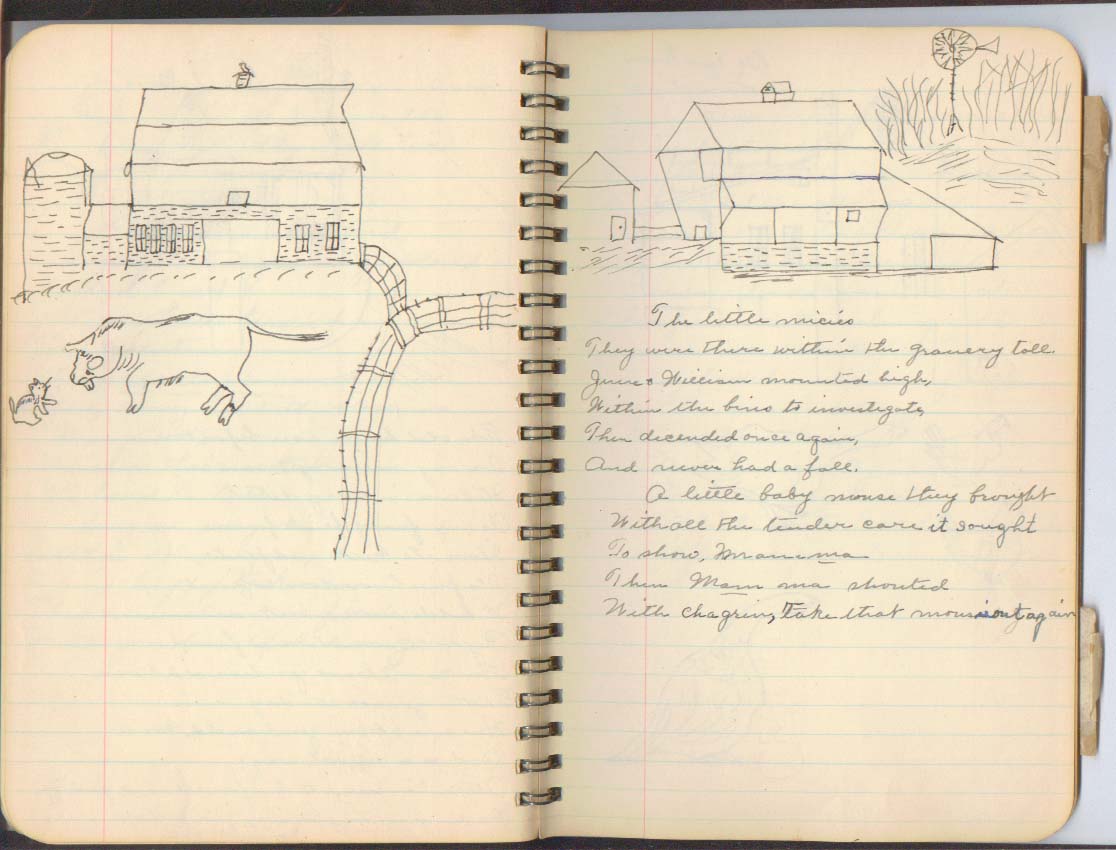 The little micies
They were there within the granery tall.
June & William mounted high,
Within the bins to investigate,
Then decended once again,
And never had a fall.
A little baby mouse they brought
With all the tender care it sought
To show, Mam ma
Then Mam ma shouted
With chagrin, Take that mousie out again